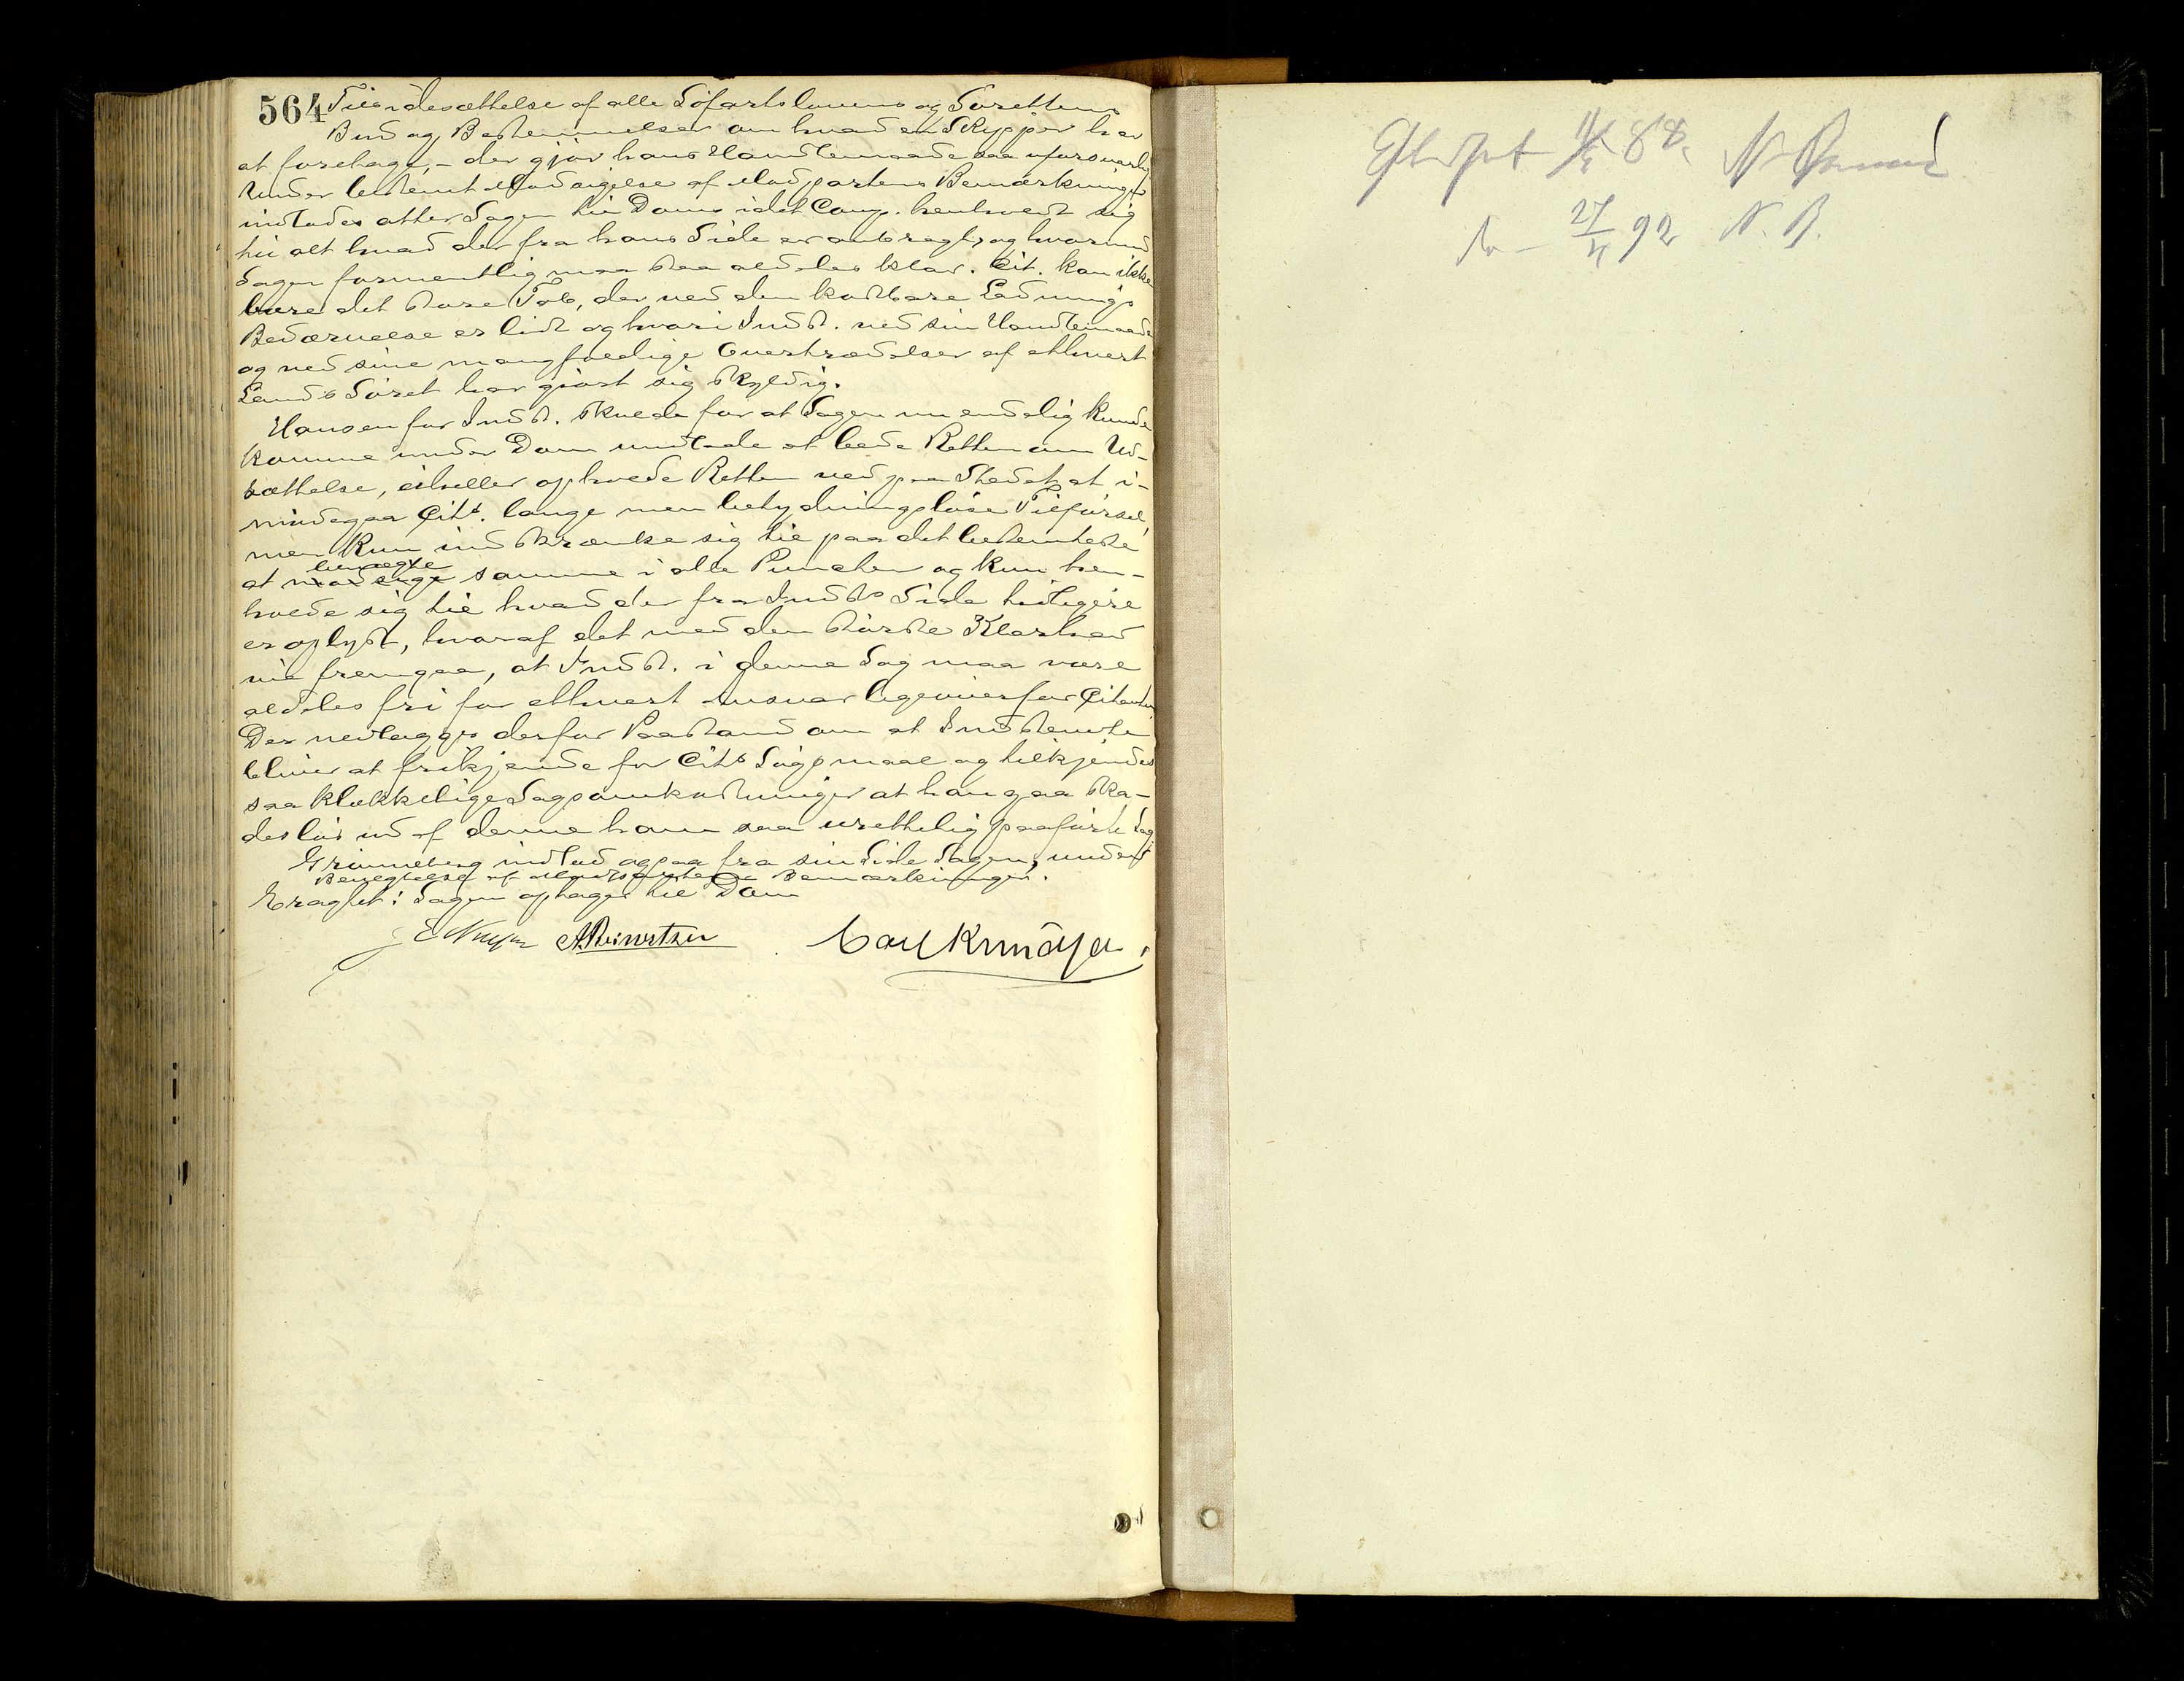 564 Tilsidesættelse af alle Söfartslovens og Sörettens
Bud og Bestemmelser om hvad en Skipper har
at foretage, – der gjör hans Handlemaade saa uforsvarlig
Under bestemt Modsigelse af Modpartens Bemærkninger
indlades atter Sagen til Doms idet Comp. henholdt sig
til alt hvad der fra hans Side er anbragt, og hvorved
Sagen formentlig maa staa aldeles klar. Cit. kan ikke
bære det store Tab, der ved den kostbare Ladnings
Bedærvelse er lidt og hvori Indst. ved sin Handlemaade
og ved sine mangfoldige Overtrædelser af ethvert
Lands Söret har gjort sig skyldig.
Hansen for Indst. skulde for at Sagen nu endelig kunde
komme under Dom undlade at bede Retten om Ud-
sættelse, eiheller opholde Retten ved paa Stedet at i-
mödegaa Cits. lange men betydningslöse Tilförsel,
men kun indskrænke sig til paa det bestemteste
benægte
at modsige samme i alle Puncter og kun hen-
holde sig til hvad der fra Indsts Side tidligere
er oplyst, hvoraf det med den störste Klarhed
vil fremgaa, at Indst. i denne Sag maa være
aldeles fri for ethvert Ansvar ligeoverfor Citanten.
Der nedlægges derfor Paastand om at Indstevnte
bliver at frikjende for Cits Sögsmaal og tilkjendes
saa klækkelige Sagsomkostninger at han gaa ska-
deslös ud af denne ham saa urettelig paaförte Sag
Grimneberg indlod ogsaa fra sin Side Sagen, under
Benegtelse af Modpartens Bemærkninger.
Eragtet: Sagen optages til Dom
Carl
11/5 88.
27/4 92 N. B.